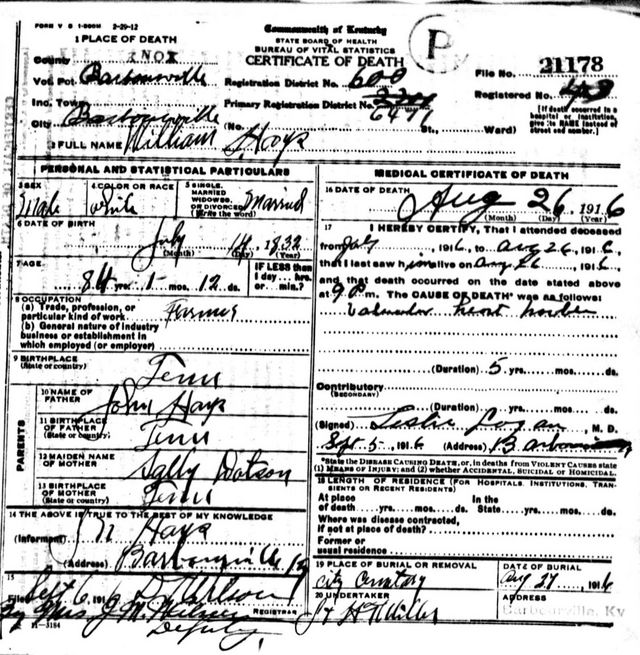 FORM V S 1-500M 2-29-12
Commonwealth of Kentucky
STATE BOARD OF HEALTH
BUREAU OF VITAL STATISTICS
CERTIFICATE OF DEATH
P
1 PLACE OF DEATH
County KNOX
Vot. Pct. Barbourville
Inc. Town
City Barbourville
Registration District No. 600
Primary Registration District No. 6471
File No. 21178
Registered No. 48
(No. St., Ward)
[If death occurred in a hospital or institution, give its NAME instead of street and number.]
2 FULL NAME William Hays
PERSONAL AND STATISTICAL PARTICULARS
3 SEX Male
4 COLOR OR RACE White
5 SINGLE, MARRIED WIDOWED, OR DIVORCED (Write the word) Married
6 DATE OF BIRTH July 14, 1832
(Month) (Day) (Year)
7 AGE 84 yrs. 1 mos. 12 ds.
IF LESS than 1 day... hrs. or min.?
8 OCCUPATION
(a) Trade, profession, or particular kind of work Farmer
(b) General nature of industry business or establishment in which employed (or employer)
9 BIRTHPLACE (State or country) Tenn
PARENTS
10 NAME OF FATHER John Hays
11 BIRTHPLACE OF FATHER (State or country) Tenn
12 MAIDEN NAME OF MOTHER Sally Dotson
13 BIRTHPLACE OF MOTHER (State or country) Tenn
14 THE ABOVE IS TRUE TO THE BEST OF MY KNOWLEDGE
(Informant) Hays
(Address) Barbourville
15
Filed Sept 6, 191 Wilson
REGISTRAR
By Mrs J. M. Wilson
Deputy
11-3184
MEDICAL CERTIFICATE OF DEATH
16 DATE OF DEATH Aug 26, 1916
(Month) (Day) (Year)
17 I HEREBY CERTIFY, That I attended deceased
from July, 1916, to Aug 26, 1916,
that I last saw him alive on Aug 26, 1916,
and that death occurred on the date stated above
at 9 m. The CAUSE OF DEATH* was as follows:
Valvular heart trouble
(Duration) 5 yrs. mos. ds.
Contributory
(SECONDARY)
(Duration) yrs. mos. ds.
(Signed) Leslie Logan, M. D.
Sept 5, 1916 (Address) Barbourville
*State the DISEASE CAUSING DEATH, or, in deaths from VIOLENT CAUSES state (1) MEANS OF INJURY; and (2) whether ACCIDENTAL, SUICIDAL or HOMICIDAL.
18 LENGTH OF RESIDENCE (FOR HOSPITALS, INSTITUTIONS, TRANSIENTS OR RECENT RESIDENTS)
At place of death yrs. mos. ds. In the State yrs. mos. ds.
Where was disease contracted, if not at place of death?
Former or usual residence
19 PLACE OF BURIAL OR REMOVAL City Cemetery
DATE OF BURIAL Aug 27, 1916
20 UNDERTAKER Miller
Barbourville, Ky